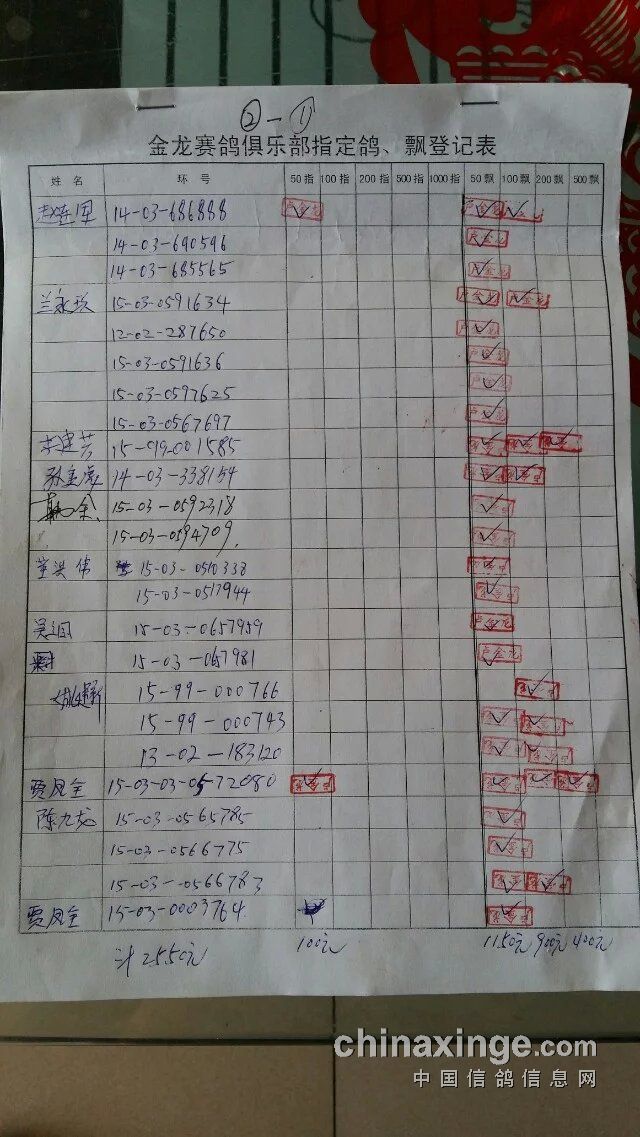 ②-①
金龙赛鸽俱乐部指定鸽、飘登记表
姓名 环号 50指 100指 200指 500指 1000指 50飘 100飘 200飘 500飘
14-03-686888
14-03-690596
14-03-685565
兰永 15-03-0591634
12-02-287650
15-03-0591636
15-03-0597625
15-03-0567697
15-19-001585
14-03-338154
15-03-0592318
15-03-0594709
李洪伟 15-03-0510338
15-03-0517944
15-03-0657959
15-03-067981 卢金龙
15-99-000766
15-99-000743
13-02-183120
贾凤全 15-03-03-0572080
陈九龙 15-03-0565785
15-03-0566775
15-03-0566783
贾凤全 15-03-0003764
计2550元 100元 1150元 900元 400元
chinaxinge.com
中国信鸽信息网